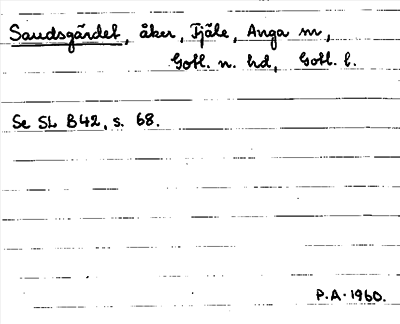 Saudsgärdet, åker, Fjäle, Anga sn,
Gotl. n. hd, Gotl. l.
Se SL B42, s. 68.
P.A. 1960.